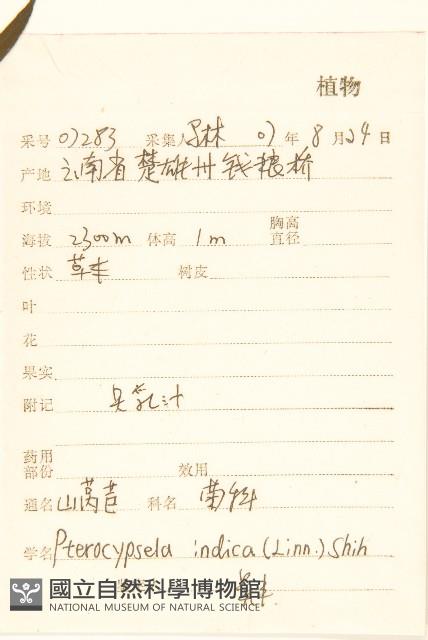 植物
采号 07283 采集人 林 07 年 8 月 24 日
产地 云南省楚雄州钱粮桥
环境
海拔 2300m 体高 1m 胸高直径
性状 草本 树皮
叶
花
果实
附记 具乳汁
药用部份 效用
通名 山莴苣 科名 菊科
学名 Pterocypsela indica (Linn.) Shih
國立自然科學博物館
NATIONAL MUSEUM OF NATURAL SCIENCE